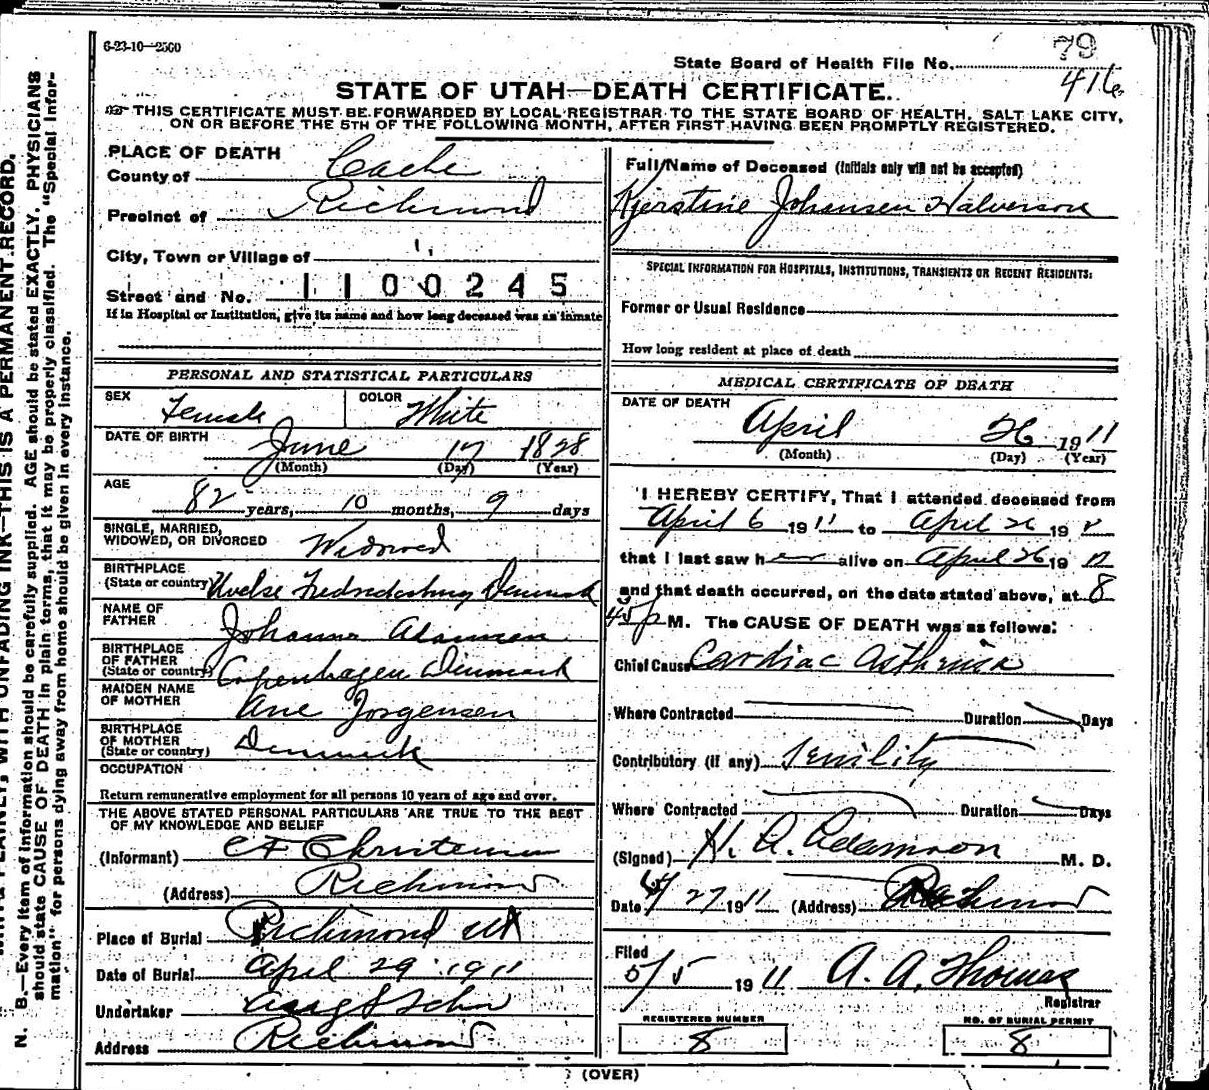 6-23-10—2500
79
State Board of Health File No.
416
STATE OF UTAH—DEATH CERTIFICATE.
THIS CERTIFICATE MUST BE FORWARDED BY LOCAL REGISTRAR TO THE STATE BOARD OF HEALTH, SALT LAKE CITY,
ON OR BEFORE THE 5TH OF THE FOLLOWING MONTH, AFTER FIRST HAVING BEEN PROMPTLY REGISTERED.
PLACE OF DEATH
County of Cache
Precinct of Richmond
City, Town or Village of
Street and No. 1100245
If in Hospital or Institution, give its name and how long deceased was an inmate
PERSONAL AND STATISTICAL PARTICULARS
SEX Female COLOR White
DATE OF BIRTH June 17 1828
(Month) (Day) (Year)
AGE
82 years, 10 months, 9 days
SINGLE, MARRIED,
WIDOWED, OR DIVORCED Widowed
BIRTHPLACE
(State or country) Denmark
NAME OF
FATHER
BIRTHPLACE
OF FATHER
(State or country) Copenhagen Denmark
MAIDEN NAME
OF MOTHER Ane Jorgensen
BIRTHPLACE
OF MOTHER
(State or country) Denmark
OCCUPATION
Return remunerative employment for all persons 10 years of age and over.
THE ABOVE STATED PERSONAL PARTICULARS ARE TRUE TO THE BEST
OF MY KNOWLEDGE AND BELIEF
(Informant) Christensen
(Address) Richmond
Place of Burial Richmond Ut
Date of Burial April 29 1911
Undertaker
Address Richmond
Full Name of Deceased (Initials only will not be accepted)
Kjerstine Johansen Halverson
SPECIAL INFORMATION FOR HOSPITALS, INSTITUTIONS, TRANSIENTS OR RECENT RESIDENTS:
Former or Usual Residence
How long resident at place of death
MEDICAL CERTIFICATE OF DEATH
DATE OF DEATH
April 26 1911
(Month) (Day) (Year)
I HEREBY CERTIFY, That I attended deceased from
April 6 1911 to April 26 19
that I last saw her alive on April 26 19
and that death occurred, on the date stated above, at 8
45 p M. The CAUSE OF DEATH was as follows:
Chief Cause Cardiac Asthenia
Where Contracted Duration Days
Contributory (if any) Senility
Where Contracted Duration Days
(Signed) H. A. Adamson M. D.
Date 4/27 1911 (Address) Richmond
Filed
5/5 1911 A. A. Thomas
Registrar
REGISTERED NUMBER
8
NO. OF BURIAL PERMIT
8
(OVER)
N. B.—Every item of information should be carefully supplied. AGE should be stated EXACTLY. PHYSICIANS
should state CAUSE OF DEATH in plain terms, that it may be properly classified. The "Special Infor-
mation" for persons dying away from home should be given in every instance.
WITH UNFADING INK—THIS IS A PERMANENT RECORD.